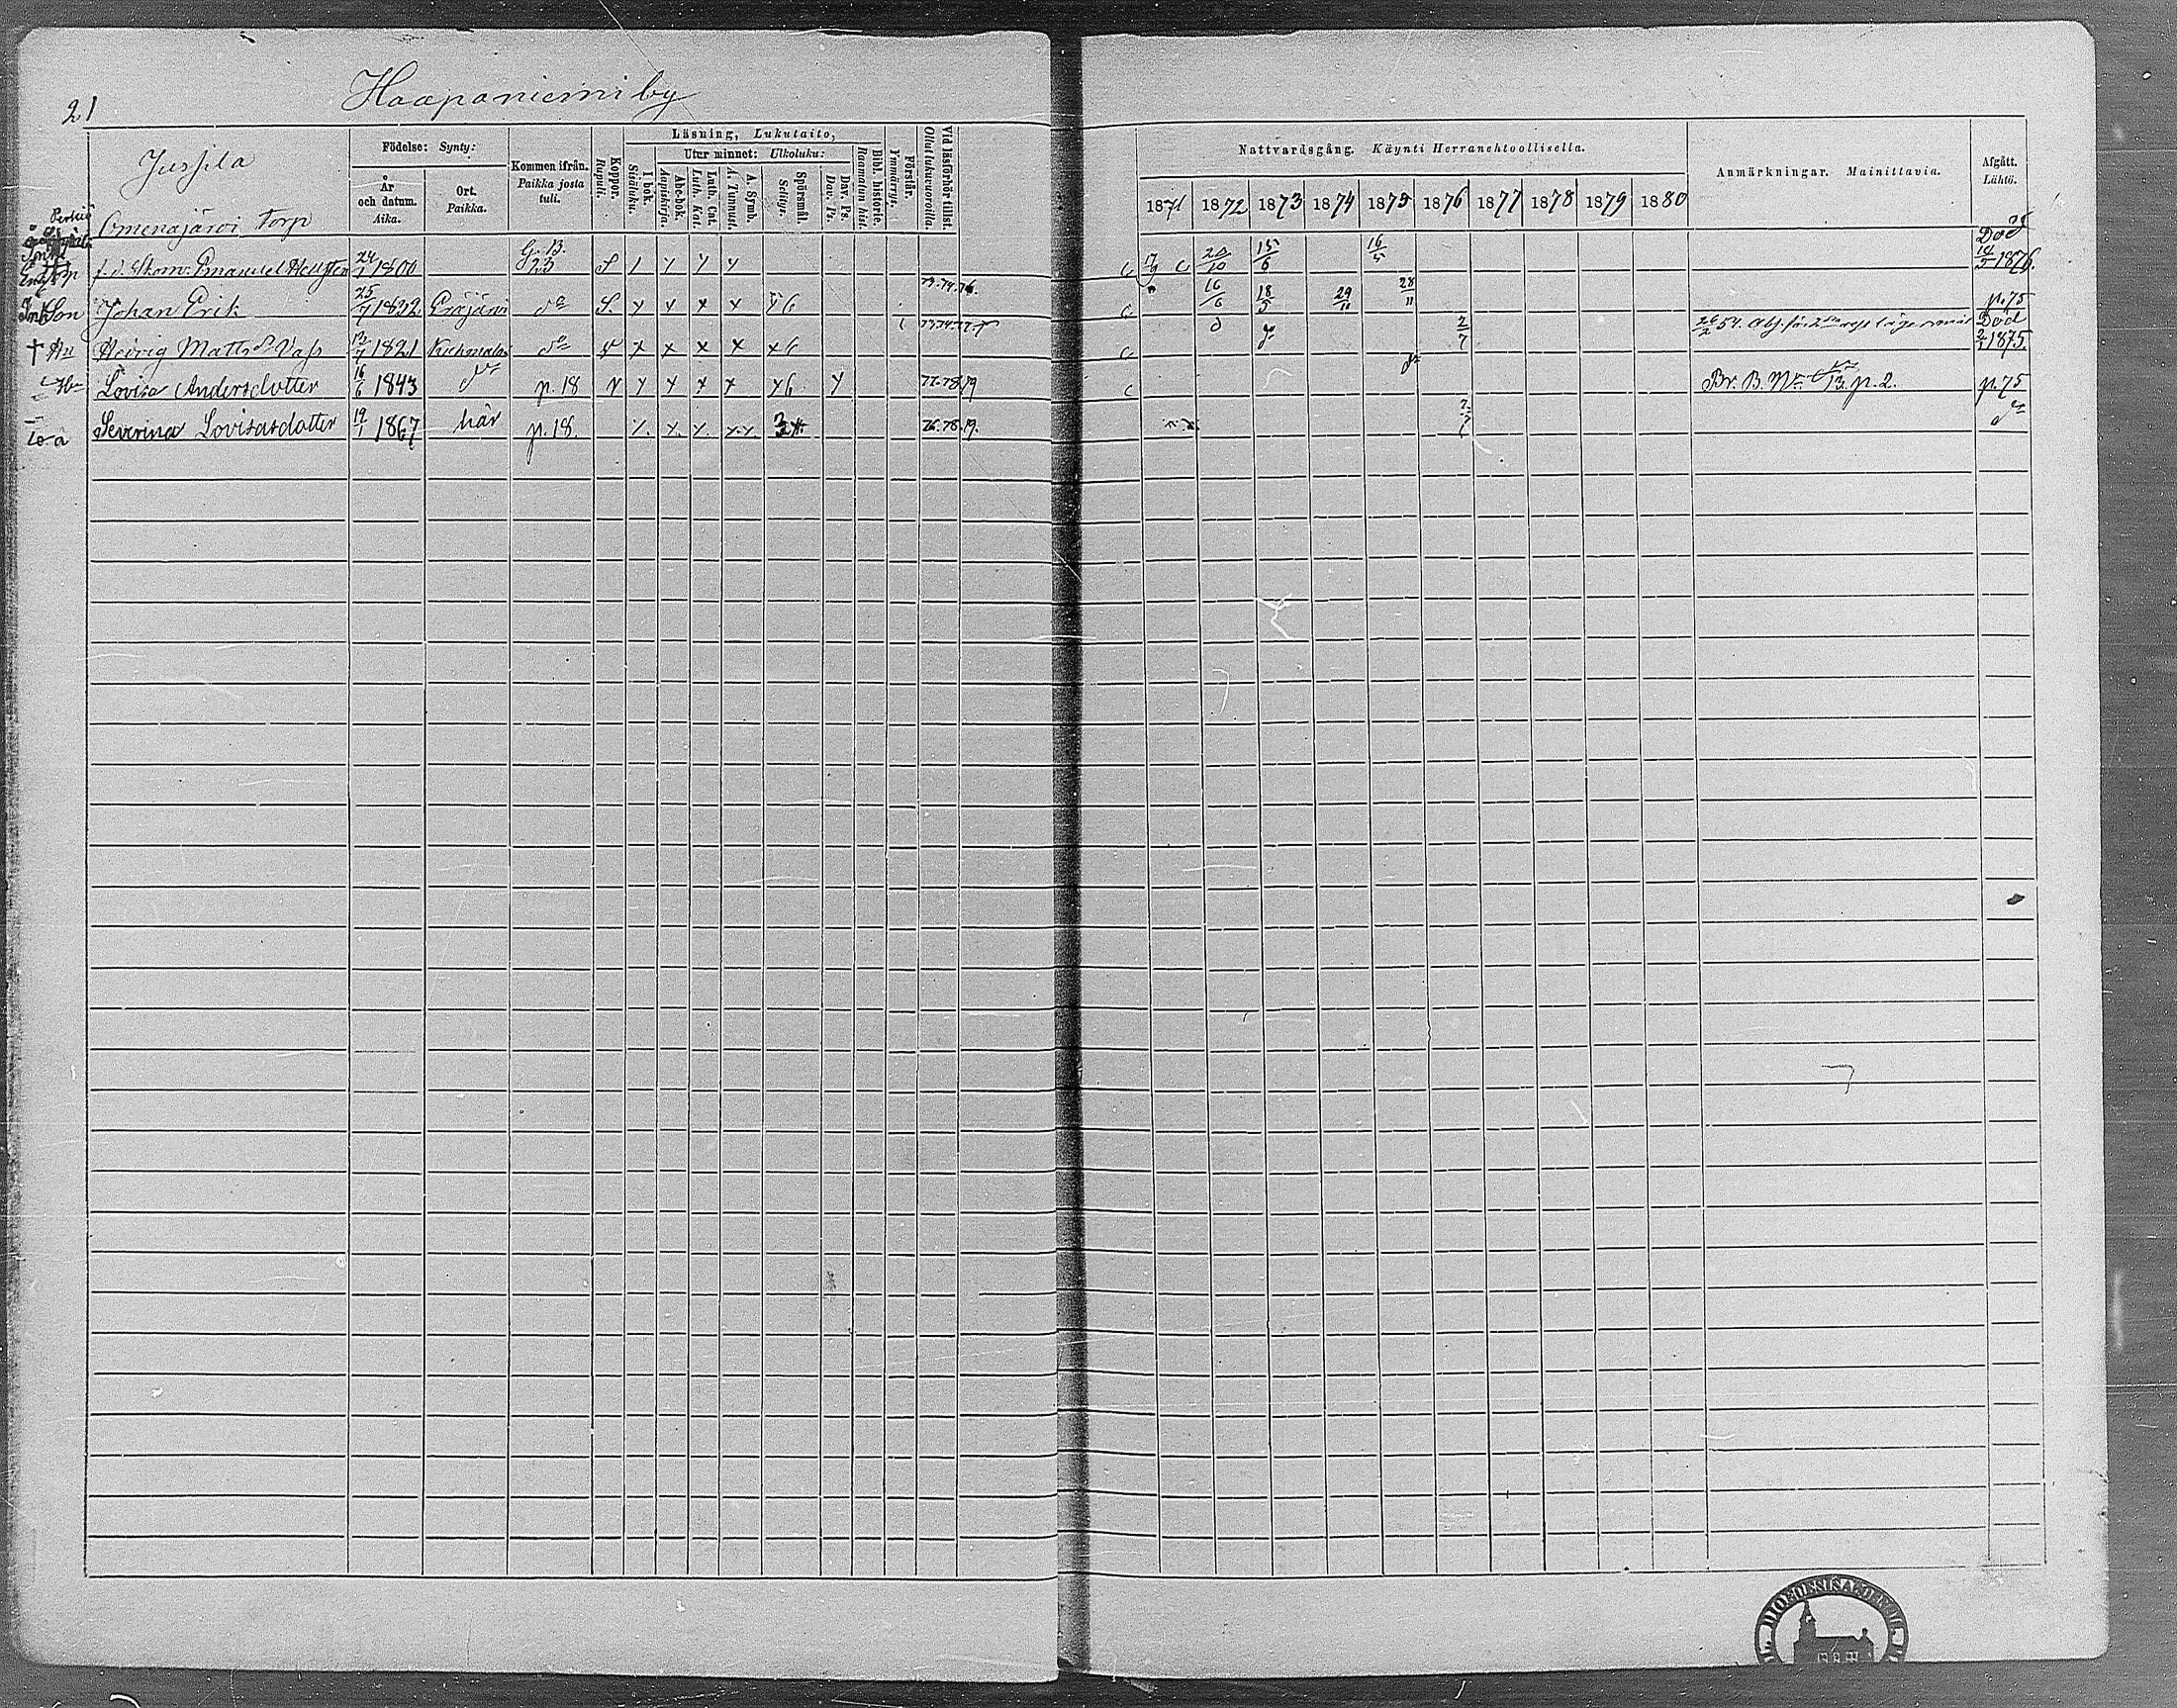 21
Haapaniemi by
Jussila
Omenajärvi Torp
Födelse: Synty:
År och datum. Aika.
Ort. Paikka.
Kommen ifrån. Paikka josta tuli.
Koppor. Rupuli.
Läsning, Lukutaito,
I bok. Sisäluku.
Utur minnet: Ulkoluku:
Abc-bok. Aapiskirja.
Luth. Cat. Luth. Kat.
A. Symb. A. Tunnust.
Spörsmål. Selitys.
Dav. Ps. Dav. Ps.
Bibl. historie. Raamatun hist.
Förstår. Ymmärrys.
Vid läsförhör tillst. Ollut lukuvuoroilla.
Nattvardsgång. Käynti Herranehtoollisella.
1871 1872 1873 1874 1875 1876 1877 1878 1879 1880
Anmärkningar. Mainittavia.
Afgått. Lähtö.
f.d. Skom. Emanuel Hellsten 24/1 1800 G. B. 23 S 17/9 c 20/10 15/6 16/5 Död 14/5 1876.
Son Johan Erik 25/7 1832 Eräjärvi do S. x x x x x6 73.74.76. c 16/6 18/5 29/11 28/11 p. 75
† Hu Hedvig Mattsdr Vass 13/7 1821 Kuhmalax do x x x x x6 c 7/7 Abs. för 2dra resn lägersmål Död 2/1 1875.
Lovisa Andersdotter 16/6 1843 dr p. 18 v x x x x x6 x 77.78.79 c Br. B. No 13. p. 2. p. 75
Severina Lovisasdotter 19/1 1867 här p. 18. x. x. x. x.x. 3 76.78.79. dr